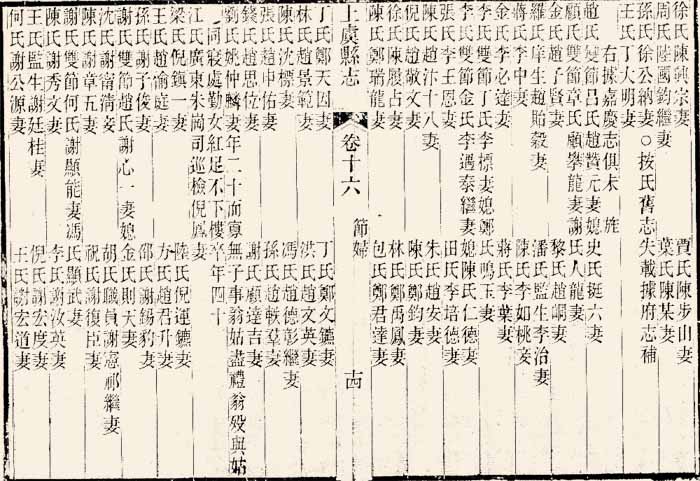 徐氏陳興宗妻 賈氏陳步山妻
周氏陸國鈞繼妻 葉氏陳某妻
孫氏徐公納妻○按氏舊志失載據府志補
王氏丁大明妻
右據嘉慶志俱未旌
趙氏雙節呂氏趙贊元妻媳史氏珽六妻
顧氏雙節章氏顧攀龍妻謝氏人龍妻
金氏趙子賢妻 黎氏趙峒妻
羅氏庠生趙貽穀妻 潘氏監生李治妻
蔣氏李中妻 陳氏李如桃妾
金氏李必達妻 蔣氏李葉妻
李氏雙節丁氏李標妻媳鄭氏鳴玉妻
李氏雙節金氏李遇泰繼妻媳陳氏仁德妻
張氏李王恩妻 田氏李培德妻
陳氏趙汴十八妻 朱氏趙安妻
倪氏趙敬文妻 陳氏鄭鈞妻
徐氏陳股占妻 林氏鄭禹鳳妻
陳氏鄭瑞龍妻 包氏鄭君達妻
上虞縣志 卷十六 節婦 十四
丁氏鄭天因妻 丁氏鄭文鑣妻
林氏趙景範妻 洪氏趙文英妻
陳氏沈標妻 馮氏趙德彰繼妻
張氏趙申佑妻 孫氏趙軼羣妻
錢氏趙思位妻 謝氏顧達吉妻
劉氏姚仲麟妻年二十而寡無子事翁姑盡禮翁歿與姑
同寢處勤女紅足不下樓卒年四十
江氏廣東朱崗司巡檢倪鳳妻
梁氏倪鎮一妻 陸氏倪運鑣妻
王氏趙諭庭妻 方氏趙君升妻
孫氏謝子俊妻 邵氏謝錫豹妻
謝氏雙節趙氏謝心一妻媳金氏則天妻
沈氏謝甯淸妾 胡氏職員謝憲祁繼妻
陳氏謝章五妻 祝氏謝復臣妻
謝氏雙節何氏謝顯能妻馮氏顯武妻
陳氏謝秀文妻 李氏謝汝英妻
王氏監生謝廷桂妻 倪氏謝宏度妻
何氏謝公源妻 王氏謝宏道妻